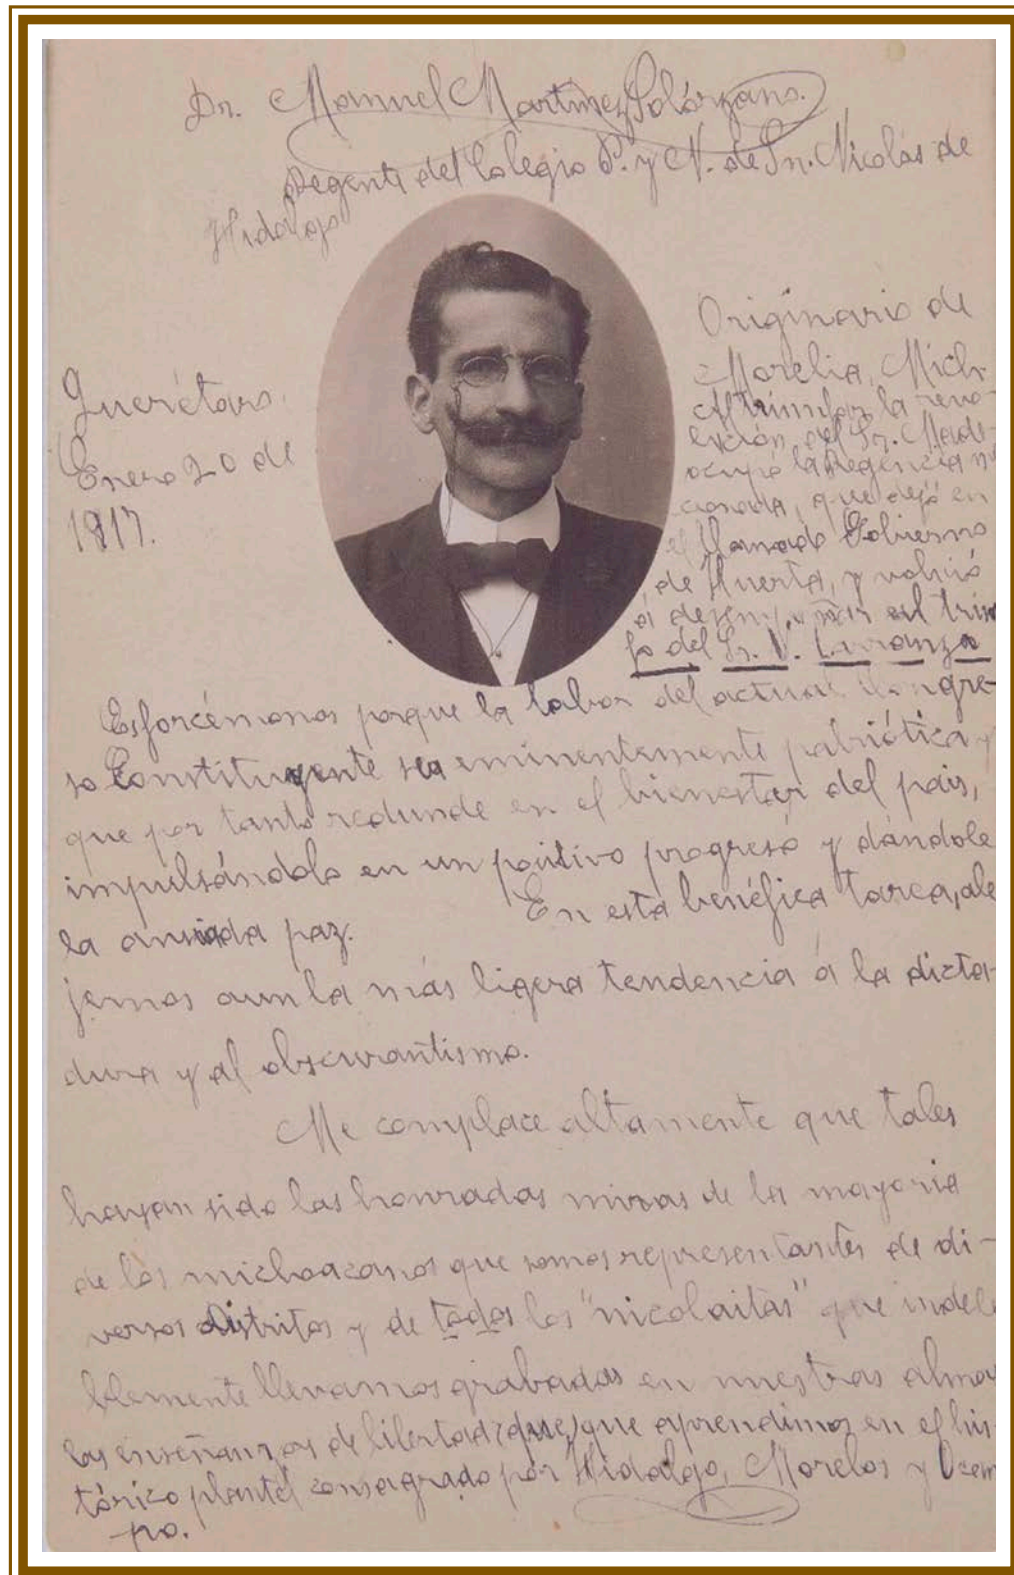 Dr. Manuel Martínez Solórzano.
Regente del Colegio P. y N. de Sn. Nicolás de
Hidalgo
Querétaro.
Enero 20 de
1917.
Originario de
Morelia, Mich.
Al triunfar la revo-
lución del Sr. Made-
ocupó la Regencia
cionada, que dejó en
el llamado Gobierno
de Huerta, y volvió
á desempeñar al triun
fo del Sr. V. Carranza
Esforcémonos porque la labor del actual Congre-
so Constituyente sea eminentemente patriótica y
que por tanto redunde en el bienestar del pais,
impulsándolo en un positivo progreso y dándole
la ansiada paz. En esta benéfica tarea, ale
jemos aun la más ligera tendencia á la dicta-
dura y al obscurantismo.
Me complace altamente que tales
hayan sido las honradas miras de la mayoria
de los michoacanos que somos representantes de di-
versos Distritos y de todos los "nicolaitas" que indele
blemente llevamos grabadas en nuestras almas
las enseñanzas de libertad que aprendimos en el his-
tórico plantel consagrado por Hidalgo, Morelos y Ocam
po.